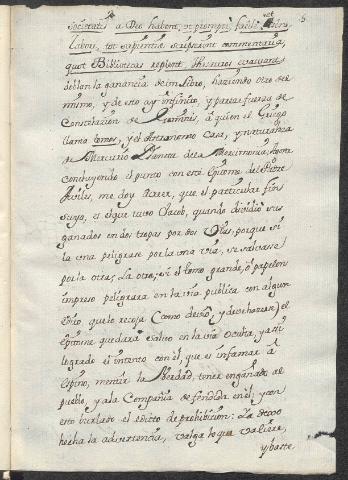 societati à Deo habent, ut promptè, facilè, et
labore, tot sapientiæ scripserint commentaria,
quot Bibliotecas replent, Thesauros
doblon la ganancia de un Libro, haziendo otro del
mismo, y de esto ay infinito, y parece fuerza de
Constelacion de à quien el Griego
llama tomos, y el Astronomo Casa, y naturaleza
de Mercurio Planeta de la Mercurancia; Ahora
concluyendo el punto con este Epitome del Padre
Aviles, me doy à creer, que el particular fin
suyo, es el que tuvo Jacob, quando dividiò sus
ganados en dos tropas por dos Vias, porque si
la una peligrase por la una via, se salvase
por la otra, La otra, si el tomo grande, ò papelon
impreso peligrara en la via publica con algun
Edicto, que lo recoja (como deviò, y deve hazerse) el
Epitome quedara salvo en la via Oculta, y assi
logrado el intento con èl, que es infamar à
Espino, mentir la Verdad, tener engañado al
pueblo, y a la Compañia defendida en èl, y con
esto burlado el edicto de prohibicion: Ya digo
hecha la advertencia, valga lo que valiere,
y baste